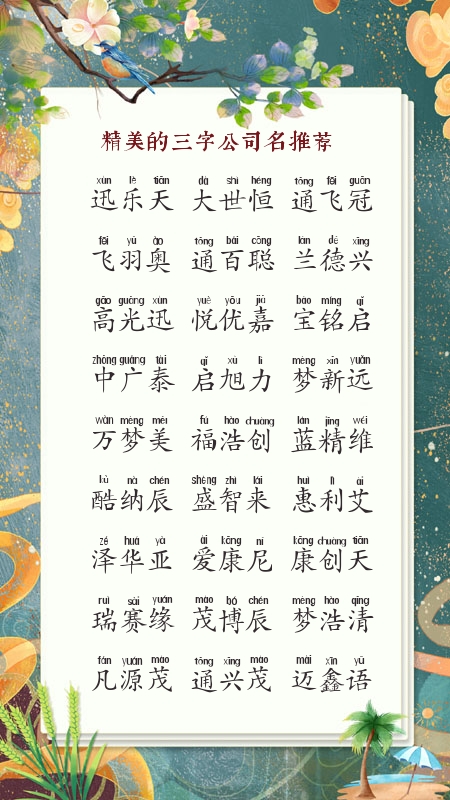 精美的三字公司名推荐
xùn lè tiān dà shì héng tōng fēi guān
迅乐天 大世恒 通飞冠
fēi yǔ ào tōng bǎi cōng lán dé xīng
飞羽奥 通百聪 兰德兴
gāo guāng xùn yuè yōu jiā bǎo míng qǐ
高光迅 悦优嘉 宝铭启
zhōng guǎng tài qǐ xù lì mèng xīn yuǎn
中广泰 启旭力 梦新远
wàn mèng měi fú hào chuàng lán jīng wéi
万梦美 福浩创 蓝精维
kù nà chén shèng zhì lái huì lì ài
酷纳辰 盛智来 惠利艾
zé huá yà ài kāng ní kāng chuàng tiān
泽华亚 爱康尼 康创天
ruì sài yuán mào bó chén mèng hào qīng
瑞赛缘 茂博辰 梦浩清
fán yuán mào tōng xīng mào mài xīn yǔ
凡源茂 通兴茂 迈鑫语